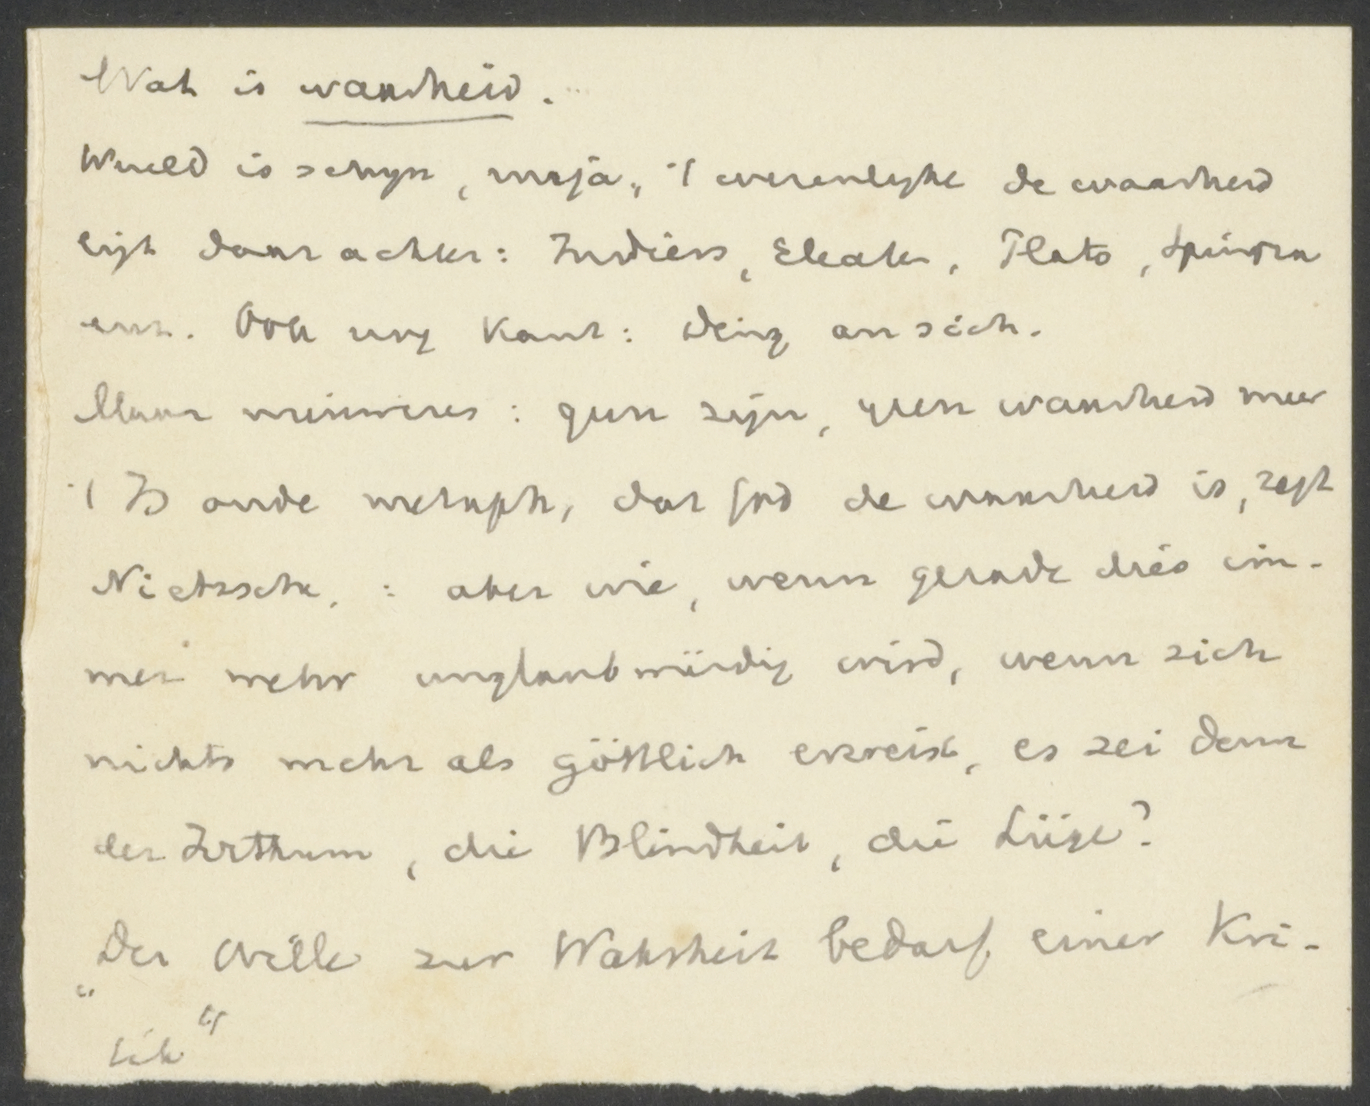 Wat is waarheid.
Wereld is schijn, maja, 't wezenlijke de waarheid
ligt daar achter: Indiërs, Eleaten, Plato, Spinoza
enz. Ook nog Kant: Ding an sich.
Maar nieuweres: geen zijn, geen waarheid meer
't Is oude metaph, dat God de waarheid is, zegt
Nietzsche, : aber wie, wenn gerade dies im-
mer mehr unglaubwürdig wird, wenn sich
nichts mehr als göttlich erweist, es sei denn
der Irrthum, die Blindheit, die Lüge?
„Der Wille zur Wahrheit bedarf einer Kri-
tik"